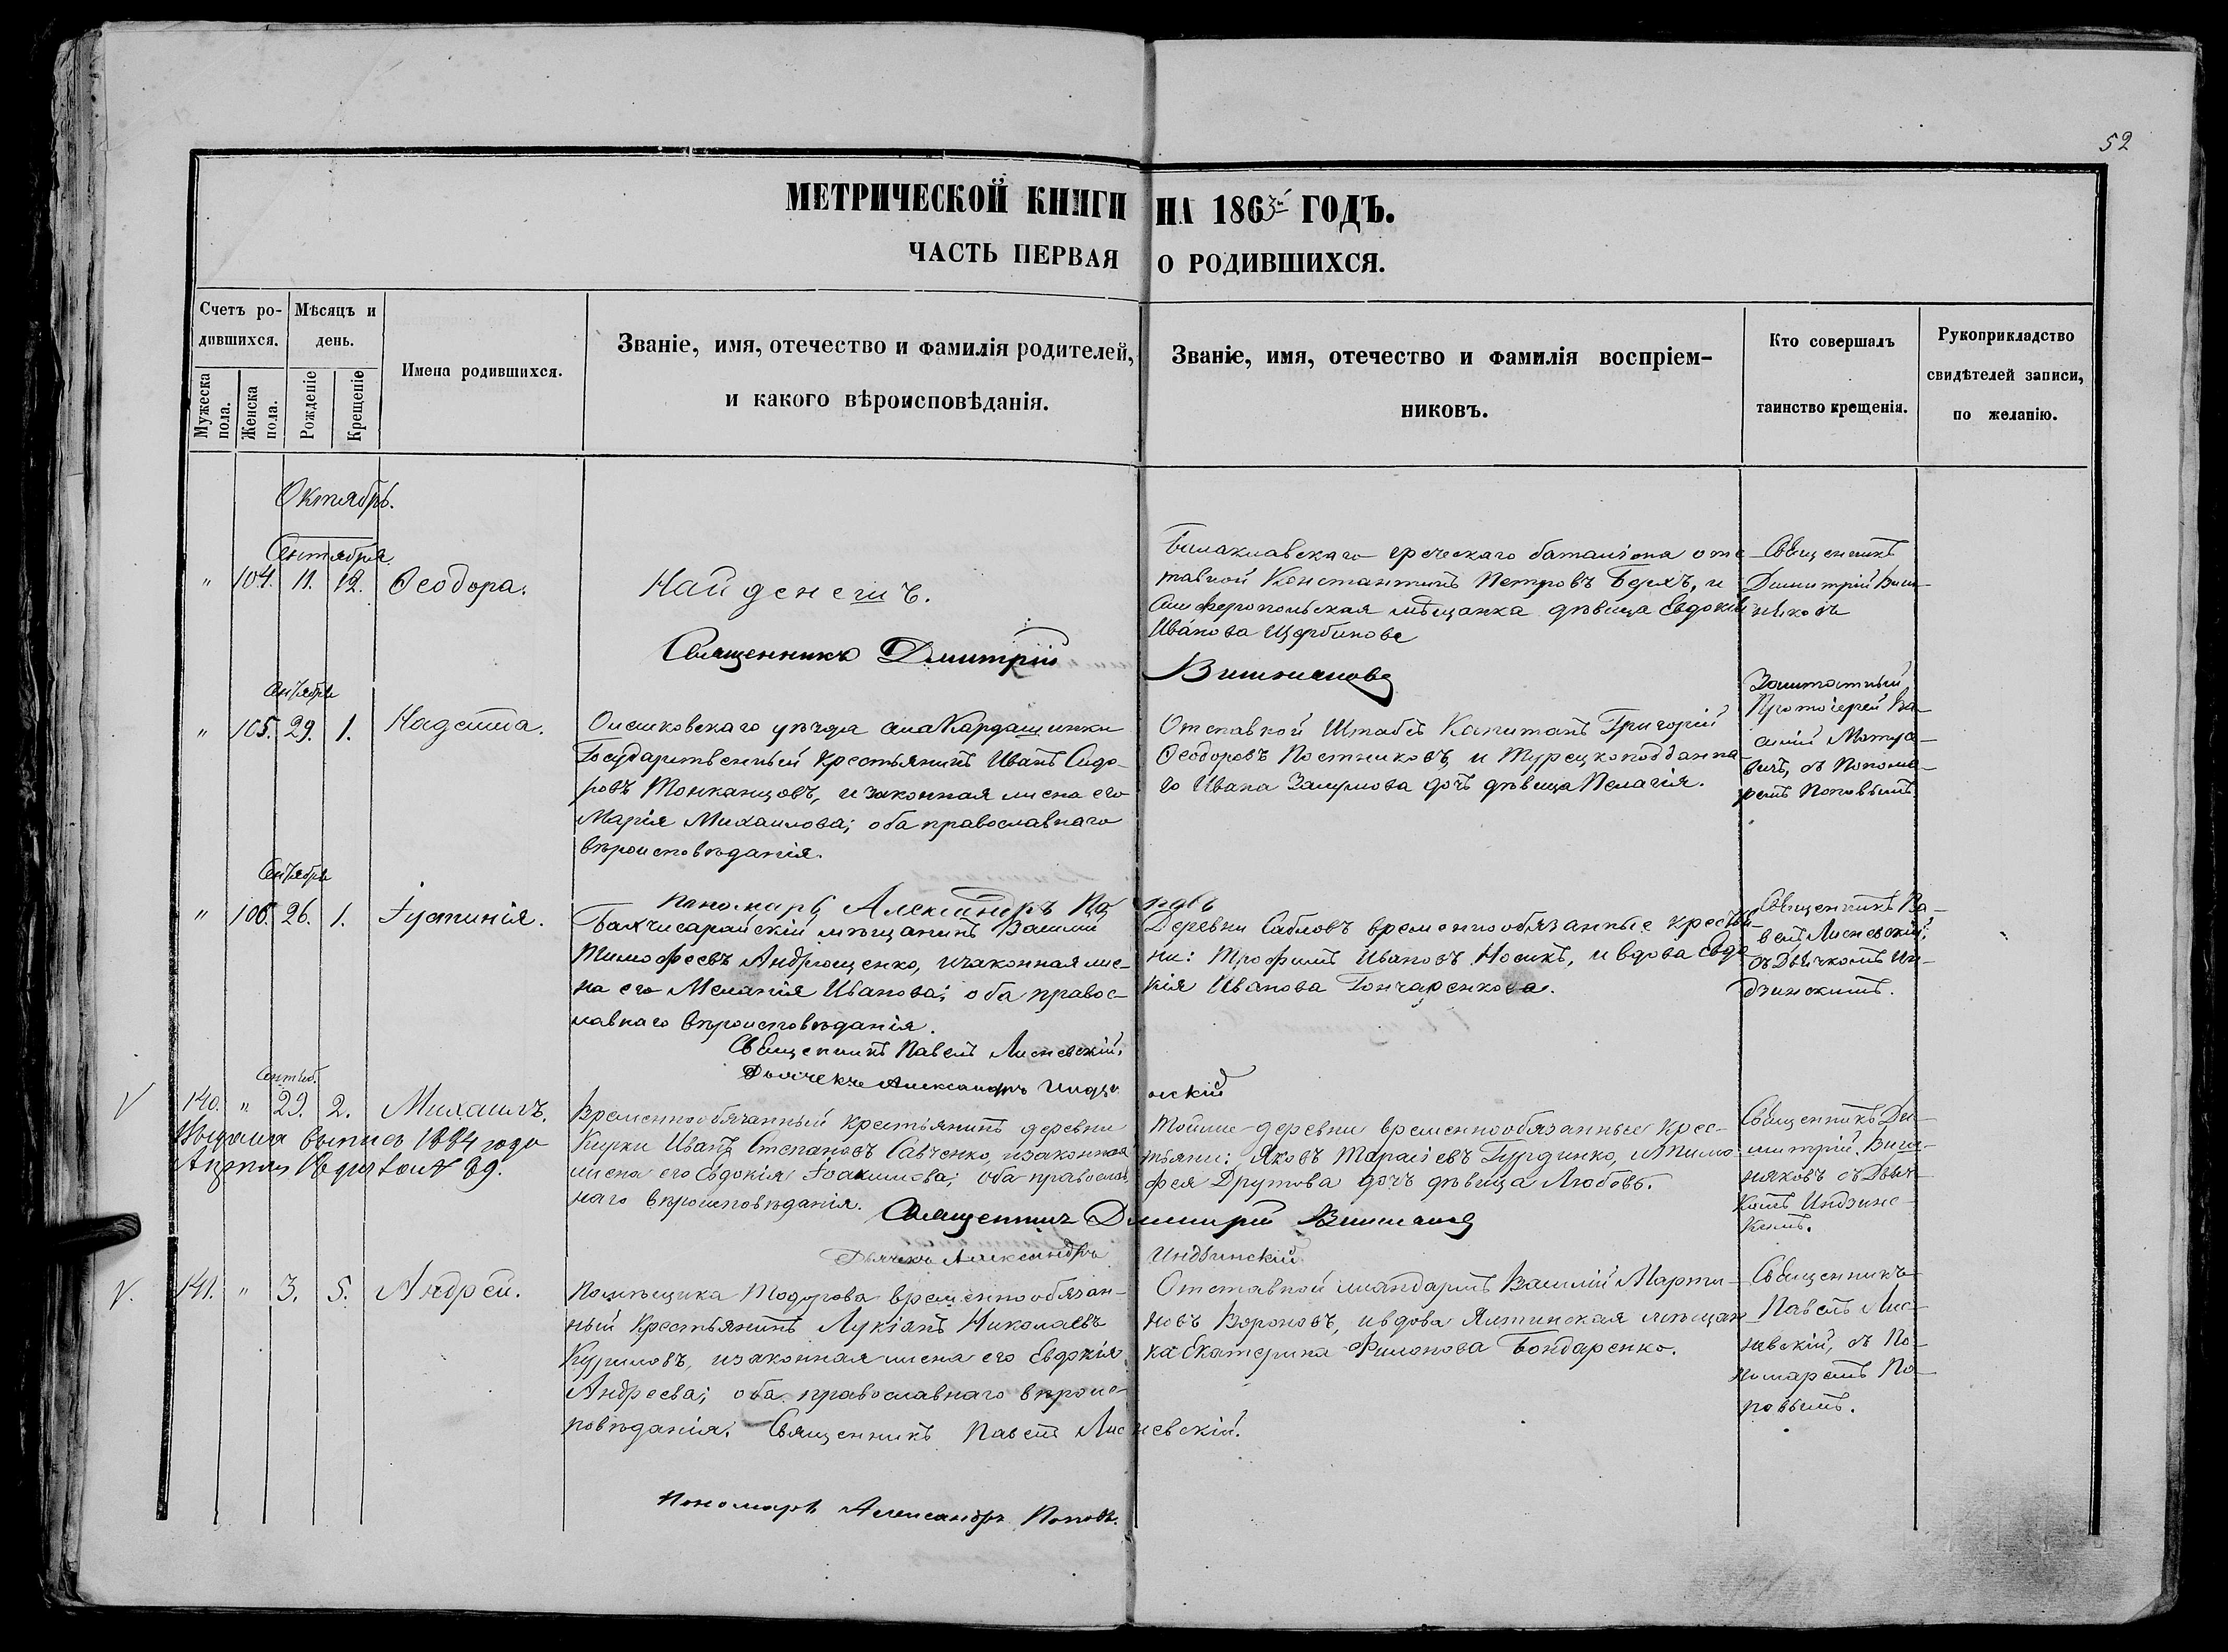 52
МЕТРИЧЕСКОЙ КНИГИ НА 1863й ГОДЪ.
ЧАСТЬ ПЕРВАЯ О РОДИВШИХСЯ.
Счетъ ро-
дившихся.
Мужеска пола.
Женска пола.
Мѣсяцъ и
день.
Рожденіе
Крещеніе
Имена родившихся.
Званіе, имя, отечество и фамилія родителей,
и какого вѣроисповѣданія.
Званіе, имя, отечество и фамилія воспріем-
никовъ.
Кто совершалъ
таинство крещенія.
Рукоприкладство
свидѣтелей записи,
по желанію.
Октябрь.
Сентября.
" 104. 11. 12. Ѳеодора.
Найденышъ.
Балаклавскаго греческаго баталіона отс
тавной Константинъ Петровъ, и
Симферопольская мѣщанка дѣвица Евдокія
Иванова Щербинова
Священникъ
Димитрій Виш-
няковъ
Священникъ Дмитрій Вишняковъ
Сентября
" 105. 29. 1. Надежда.
уѣзда села Кардашинки
Государственный крестьянинъ Иванъ Сидо-
ровъ Тонканцовъ, и законная жена его
Марія Михаилова; оба православнаго
вѣроисповѣданія.
Отставной Штабсъ Капитанъ Григорій
Ѳеодоровъ Постниковъ, и Турецкоподданна-
го Ивана дочь дѣвица Пелагія.
Заштатный
Протоіерей Ва-
силій
съ Понома-
ремъ Поповымъ
Пономарь Александръ Поповъ
Сентября
" 106. 26. 1. Іустинія.
Бахчисарайскій мѣщанинъ Василій
Тимофеевъ Андрющенко, и законная же-
на его Меланія Иванова; оба правос-
лавнаго вѣроисповѣданія.
Деревни Сабловъ временнообязанные крестья-
не: Трофимъ Ивановъ Носикъ, и вдова Евдо-
кія Иванова Гончаренкова.
Священникъ Па-
велъ Лисневскій,
съ Дьячкомъ Ин-
дзинскимъ.
Священникъ Павелъ Лисневскій.
Дьячекъ Александръ Индзинскій
Сентяб.
V 140. " 29. 2. Михаилъ.
Выдана выпись 1884 года
Апрѣля 18 дня за № 99.
Временнообязанный крестьянинъ деревни
Курки Иванъ Степановъ Савченко, и законная
жена его Евдокія Іоакимова; оба православ-
наго вѣроисповѣданія.
Тойже деревни временнообязанные крес-
тьяни: Яковъ Тарасіевъ Гурдинко, и Тимо-
фея Друтова дочь дѣвица Любовь.
Священникъ Ди-
митрій Виш-
няковъ съ Дьяч-
комъ Индзинс-
кимъ.
Священникъ Димитрій Вишняковъ
Дьячекъ Александръ Индзинскій
V. 141. " 3. 5. Андрей.
Помѣщика Тодорова временнообязан-
ный крестьянинъ Лукіанъ Николаевъ
Куриловъ, и законная жена его Евдокія
Андреева; оба православнаго вѣроис-
повѣданія. Священникъ Павелъ Лисневскій.
Отставной жандармъ Василій Марти-
новъ Вороновъ, и вдова Ялтинская мѣщан-
ка Екатерина Филонова Бондаренко.
Священникъ
Павелъ Лис-
невскій, съ По-
номаремъ По-
повымъ.
Пономарь Александръ Поповъ.